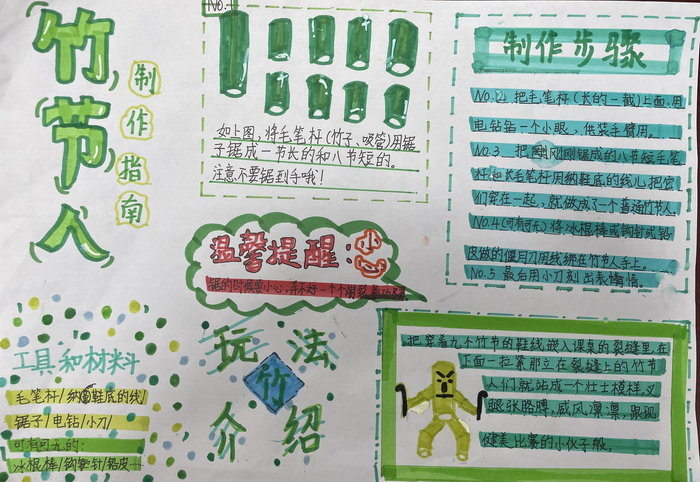 竹节人
制作指南
NO.1
如上图，将毛笔杆(竹子、吸管)用锯
子锯成一节长的和八节短的。
注意不要锯到手哦！
制作步骤
NO.2 把毛笔杆(长的一截)上面，用
电钻钻一个小眼，供装手臂用。
NO.3 把刚刚锯成的八节短毛笔
杆和长毛笔杆用纳鞋底的线儿把它
们穿在一起，就做成了一个普通竹节人。
NO.4(可有可无)将冰棍棒或钩针或铅
皮做的偃月刀用线绑在竹节人手上。
NO.5 最后用小刀刻出表情。
温馨提醒：小心
锯的时候要小心，并不好一个个
工具和材料
毛笔杆/纳鞋底的线
锯子/电钻/小刀/
可有可无的：
冰棍棒/钩针/铅皮…
玩法
竹
介绍
把穿着九个竹节的鞋线嵌入课桌的裂缝里，在
下面一拉紧，那立在裂缝上的竹节
人们就站成一个壮士模样，叉
腿张胳膊，威风凛凛，跟现
健美比赛的小伙子般。